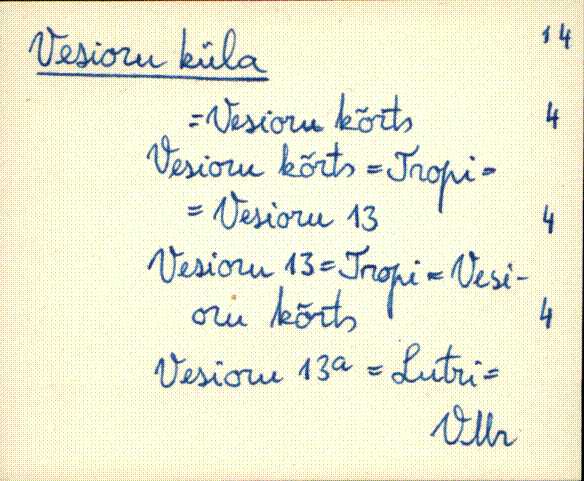 Vesioru küla 14
=Vesioru kõrts 4
Vesioru kõrts = Tropi =
= Vesioru 13 4
Vesioru 13 = Tropi = Vesi-
oru kõrts 4
Vesioru 13a = Lutri =
VMr